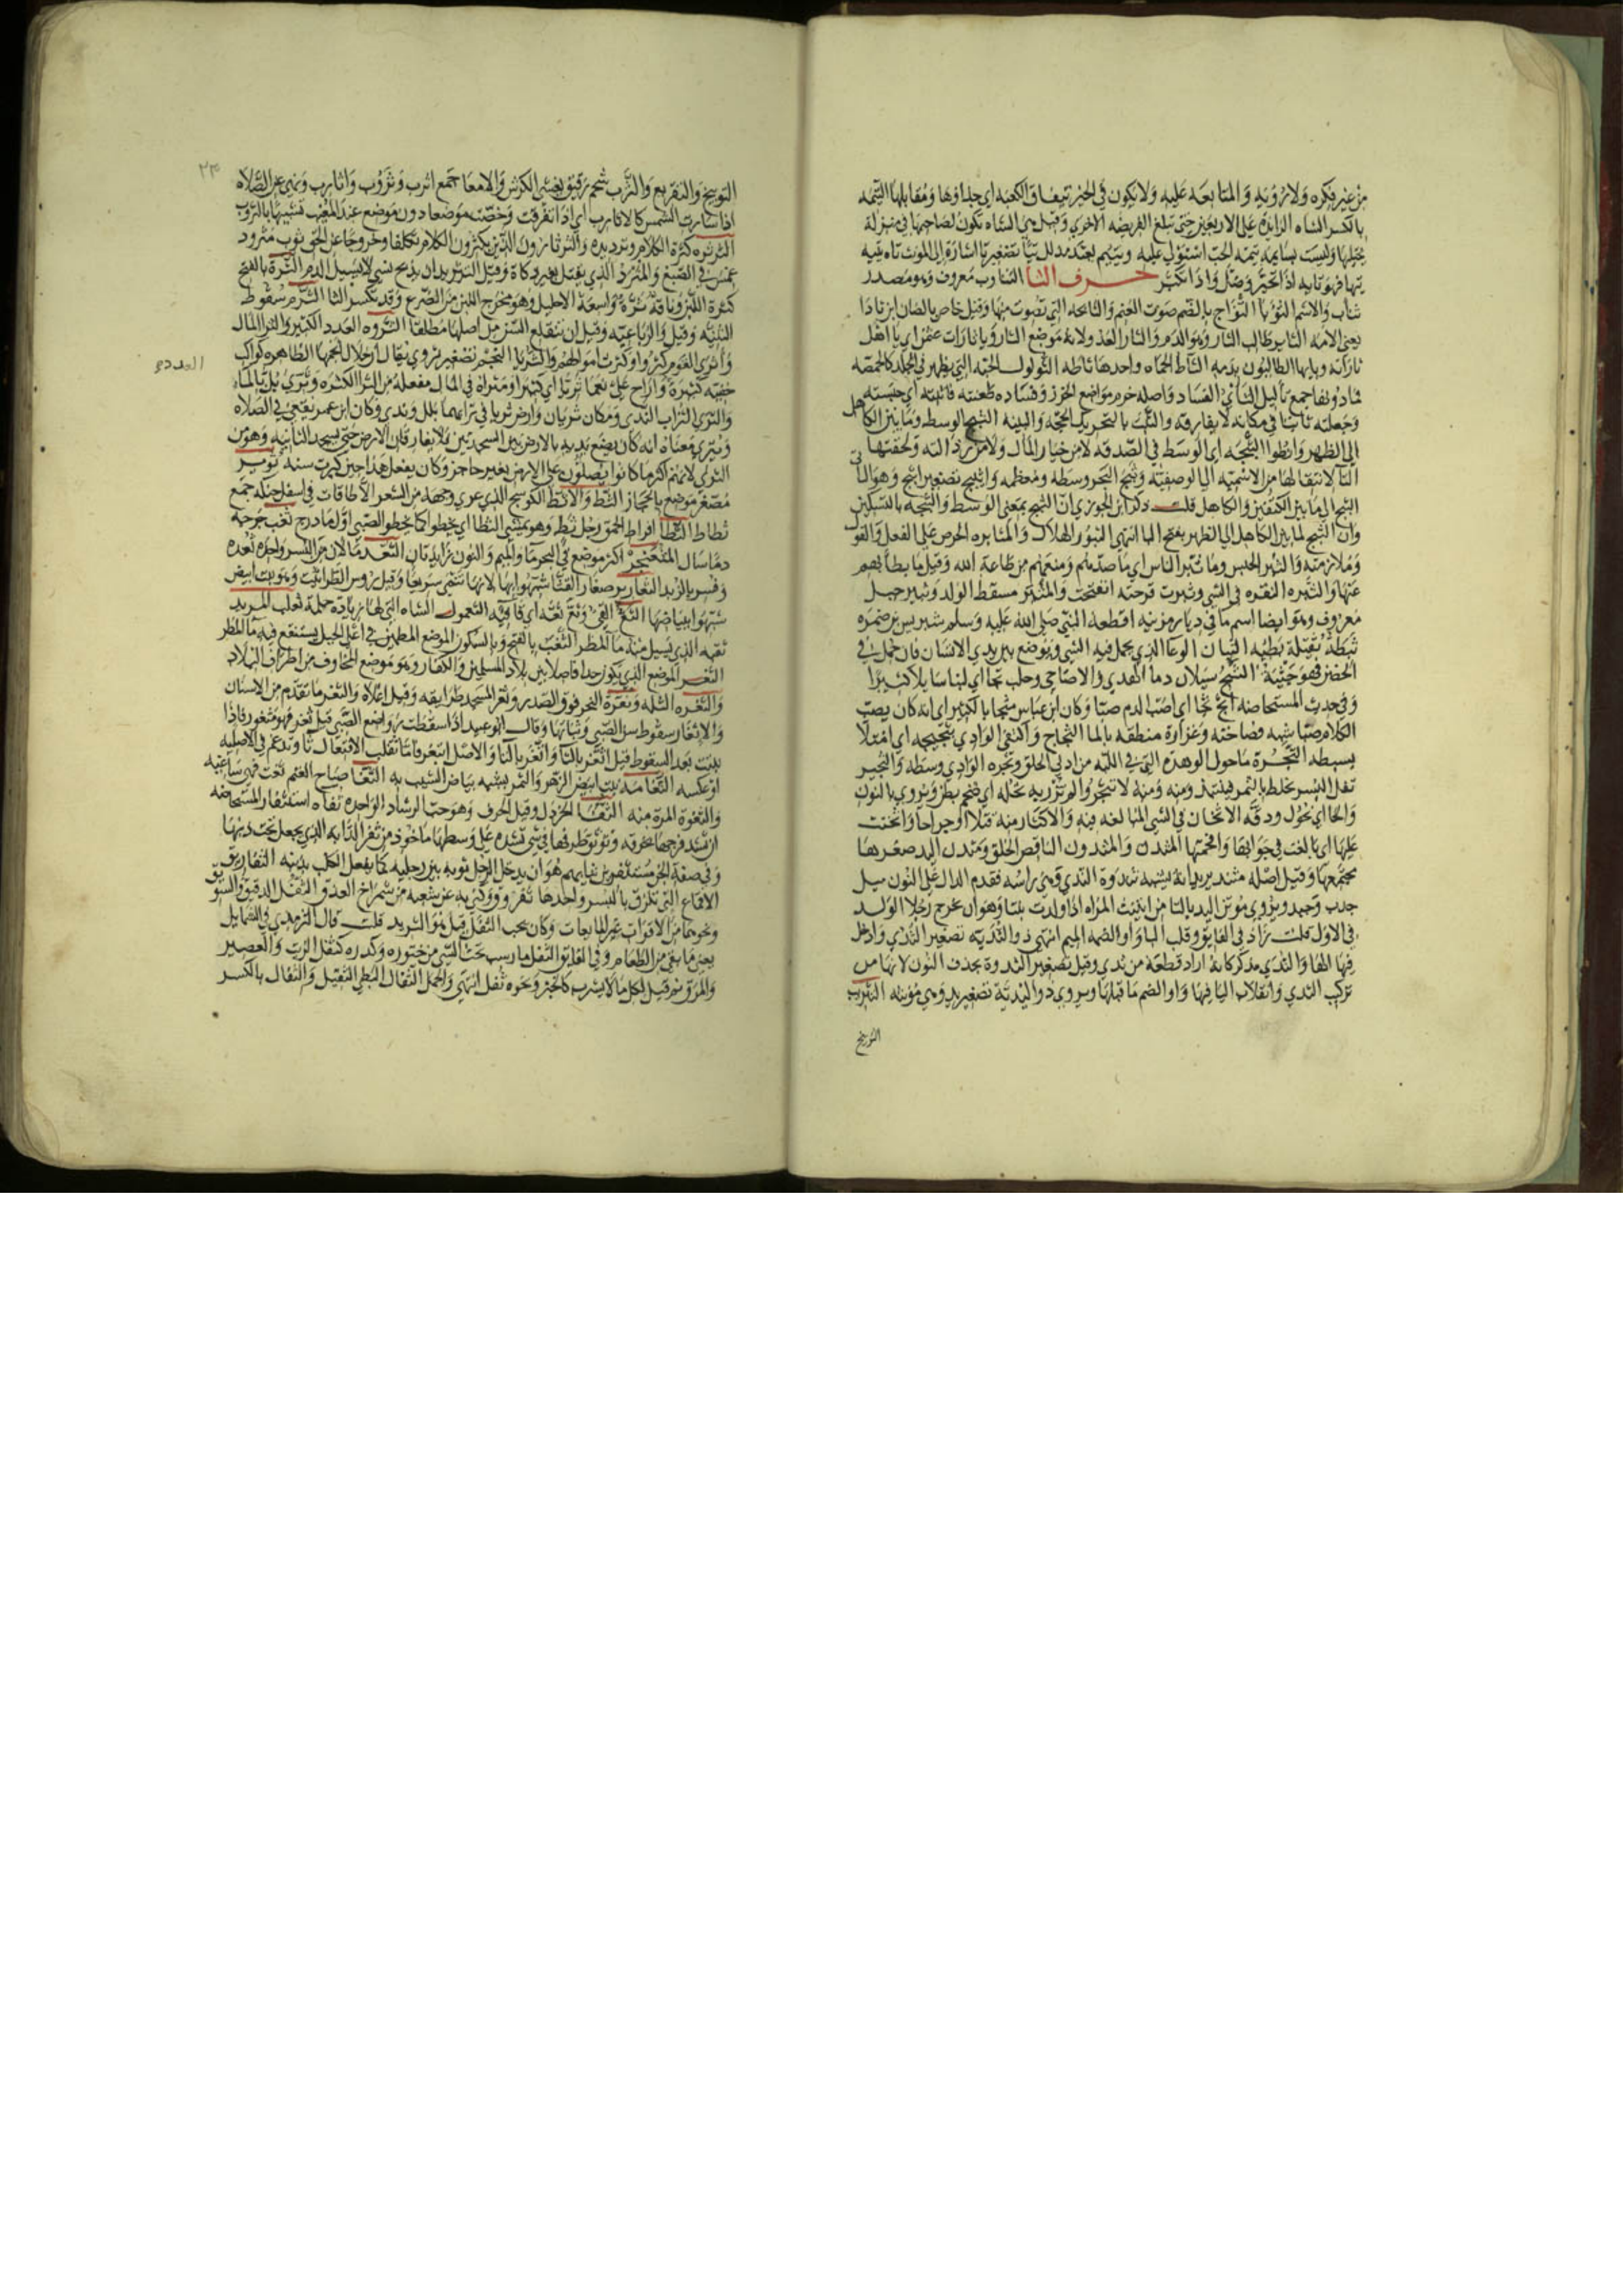 من غير فكره ولا رؤية والمتابعه عليه ولا يكون في الخير تيفاق الكعبة اي حذاؤها ومقابلها التيمه
بالكسر الشاه الزايدة على الاربعين حتى تبلغ الفريضه الاخرى وقيل هي الشاه تكون لصاحبها في منزلة
يحتلبها وليست بسايمه تيمه الحب استولى عليه ومتيم معبد مذلل تيا تصغير تا اشارة الى المونث تاه يتيه
تيها فهو تايه اذا تحير وضل واذا تكبر حرف الثا التثاوب معروف وهو مصدر
تثاب والاسم الثؤبا الثؤاج بالضم صوت الغنم والثائجه التي تصوت منها وقيل خاص بالضان ابن ثادا
يعني الامه الثاير طالب الثار وهو الدم والثار العدو لانه موضع الثار ويا ثارات عثمن اي يا اهل
ثاراته ويا ايها الطالبون بدمه الثاط الحماه واحدها ثاطه الثولول الحبه التي يظهر في الجلد كالحمصه
فما دونها جمع ثآليل الثاي الفساد واصله خرم مواضع الخرز وفساده طعنته فاثبته اي حبسته
وجعلته ثابتا في مكانه لا يفارقه والثبت بالتحريك الحجه والبينه الثبج الوسط وما بين الكاهل
الى الظهر وانطوا الثبجه اي الوسط في الصدقه لا من خيار المال ولا من رذالته ولحقتها
التا لانتقالها من الاسميه الى الوصفيه وثبج البحر وسطه ومعظمه واثيبج تصغير اثبج وهو الناتي
الثبج اي ما بين الكتفين والكاهل قلت ذكر ابن الجوزي ان الثبج بمعنى الوسط والثبجه بالتسكين
وان الثبج لما بين الكاهل الى الظهر بفتح البا انتهى الثبور الهلاك والمثابره الحرص على الفعل والقول
وملازمته والثبر الحبس وما ثبر الناس اي ما صدهم ومنعهم من طاعة الله وقيل ما بطا بهم
عنها والثبره النقره في الشي وثبرت قرحته انفتحت والمثبر مسقط الولد وثبير جبل
معروف وهو ايضا اسم ما في ديار مزينه اقطعه النبي صلى الله عليه وسلم شريس بن ضمره
ثبطة ثقيلة بطيه الثبان الوعا الذي يحمل فيه الشي ويوضع بين يدي الانسان فان حمل في
الحضن فهو خبنة الثج سيلان دما الهدي والاضاحي وحلب ثجا اي لبنا سايلا كثيرا
وفي حديث المستحاضه اثجه ثجا اي اصب الدم صبا وكان ابن عباس مثجا بالكسر اي انه كان يصب
الكلام صبا شبه فصاحته وغزارة منطقه بالما الثجاج واكتظ الوادي بثجيجه اي امتلا
بسيطه الثجرة ما حول الوهدة التي في اللبه من ادنى الحلق وثجره الوادي وسطه والثجير
ثفل البسر يخلط بالتمر فينتبذ ومنه ومنه لا تثجروا لم تزر به ثجله اي ضخم بطن ويروى بالنون
والحا اي نحول ودقه الاثخان في الشي المبالغه فيه والاكثار منه قتلا او جراحا واثخنت
عليها اي بالغت في جوابها وافحمتها المثدن والمثدون الناقص الخلق ومثدن اليد صغيرها
مجتمعها وقيل اصله مثند يريد انه يشبه ثندوة الثدي وهي راسه فقدم الدال على النون مثل
جذب وجبذ ويروى موتن اليد بالتا من ايتنت المراه اذا ولدت يتنا وهو ان يخرج رجلا الولد
في الاول قلت زاد في الفايق وقلب اليا واوا لضمه الميم انتهى ذو الثدية تصغير الثدي وادخل
فيها الها والثدي مذكر كانه اراد قطعة من ثدي وقيل تصغير الثندوة بحذف النون لانها من
تركيب الثدي وانقلاب اليا فيها واوا لضم ما قبلها ويروى ذو اليدية تصغير يد وهي مونثه التثريب
التوبيخ
٢٣
التوبيخ والتقريع والثرب شحم رقيق يغشى الكرش والامعا جمع اثرب وثروب واثارب ونهى عن الصلاه
اذا صارت الشمس كالاثارب اي اذا تفرقت وخصت موضعا دون موضع عند المغيب تشبيها بالثروب
الثرثره كثرة الكلام وترديده والثرثارون الذين يكثرون الكلام تكلفا وخروجا عن الحق ثوب مثرود
غمس في الصبغ والمثرد الذي يقتل بغير ذكاة وقيل التثريد ان يذبح بشي لا يسيل الدم الثرة بالفتح
كثرة اللبن وناقة ثرة واسعة الاحليل وهو مخرج اللبن من الضرع وقد تكسر الثا الثرم سقوط
الثنيه وقيل والرباعيه وقيل ان تنقلع السن من اصلها مطلقا الثروه العدد الكثير والثرا المال
واثرى القوم كثروا وكثرت اموالهم والثريا النجم تصغير ثروى يقال ان خلال انجمها الظاهره كواكب
خفيه كثيرة واراح علي نعما ثريا اي كثيرا ومثراة في المال مفعلة من الثرا الكثره وثري بل بالماء
والثرى التراب الندى ومكان ثريان وارض ثريا في ترابهما بلل وندى وكان ابن عمر يقعي في الصلاه
ويثري معناه انه كان يضع يديه بالارض بين السجدتين فلا يفارقان الارض حتى يسجد الثانيه وهو من
الثرى لانهم اكثر ما كانوا يصلون على الارض بغير حاجز وكان يفعل هذا حين كبرت سنه ثرير
مصغر موضع بالحجاز الثط والاثط الكوسج الذي عري وجهه من الشعر الا طاقات في اسفل حنكه جمع
ثطاط الثطا افراط الحمق رجل ثط وهو يمشي الثطا اي يخطو كما يخطو الصبي اول ما درج ثعب جرحه
دما سال المثعنجر اكثر موضع في البحر ما والميم والنون زايدتان الثعد ما لان من البسر واحده ثعده
وفسر بالزبد الثعارير صغار القثا شبهوا بها لانها تنمى سريعا وقيل روس الطراثيث وهو نبت ابيض
شبهوا ببياضها الثع القي وثع ثعة اي قا قيه الثعول الشاه التي لها زيادة حلمة ثعلب المربد
ثقبه الذي يسيل منه ما المطر الثغب بالفتح وبالسكون الموضع المطمئن في اعلى الجبل يستنقع فيه ما المطر
الثغر الموضع الذي يكون حدا فاصلا بين بلاد المسلمين والكفار وهو موضع المخاوف من اطراف البلاد
والثغره الثلمه وثغرة النحر فوق الصدر وثغر المسجد طرايقه وقيل اعلاه والثغر ما تقدم من الاسنان
والاثغار سقوط سن الصبي ونباتها وقال ابو عبيد اذا سقطت رواضع الصبي قيل ثغر فهو مثغور فاذا
نبتت بعد السقوط قيل اثغر بالثا واتغر بالتا والاصل اثتغر فاما تقلب الافتعال ثا وتدغم في الاصليه
او عكسه الثغامه نبت ابيض الزهر والثمر يشبه بياض الشيب به الثغا صياح الغنم ثغت فهي ثاغيه
والثغوة المرة منه الثفا الخردل وقيل الحرف وهو حب الرشاد الواحده ثفاه استثفار المستحاضه
ان تشد فرجها بخرقه وتوثق طرفها في شي تشده على وسطها ماخوذ من ثفر الدابه الذي يجعل تحت ذنبها
وفي صفة الجن مستثفرين ثيابهم هو ان يدخل الرجل ثوبه بين رجليه كما يفعل الكلب بذنبه الثفاريق
الاقماع التي تلزق بالبسر واحدها ثفروق وكني به عن شعبه من شمراخ العذق الثفل الدقيق والسويق
ونحوهما من الاقوات غير المايعات وكان يحب الثفل قيل هو الثريد قلت قال الترمذي في الشمايل
يعني ما بقي من الطعام وفي الفايق الثفل ما رسب تحت الشي من خثوره وكدره كثفل الزيت والعصير
والمرق ثم قيل لكل ما لا يشرب كالخبز ونحوه ثفل انتهى والجمل الثفال البطي الثقيل والثفال بالكسر